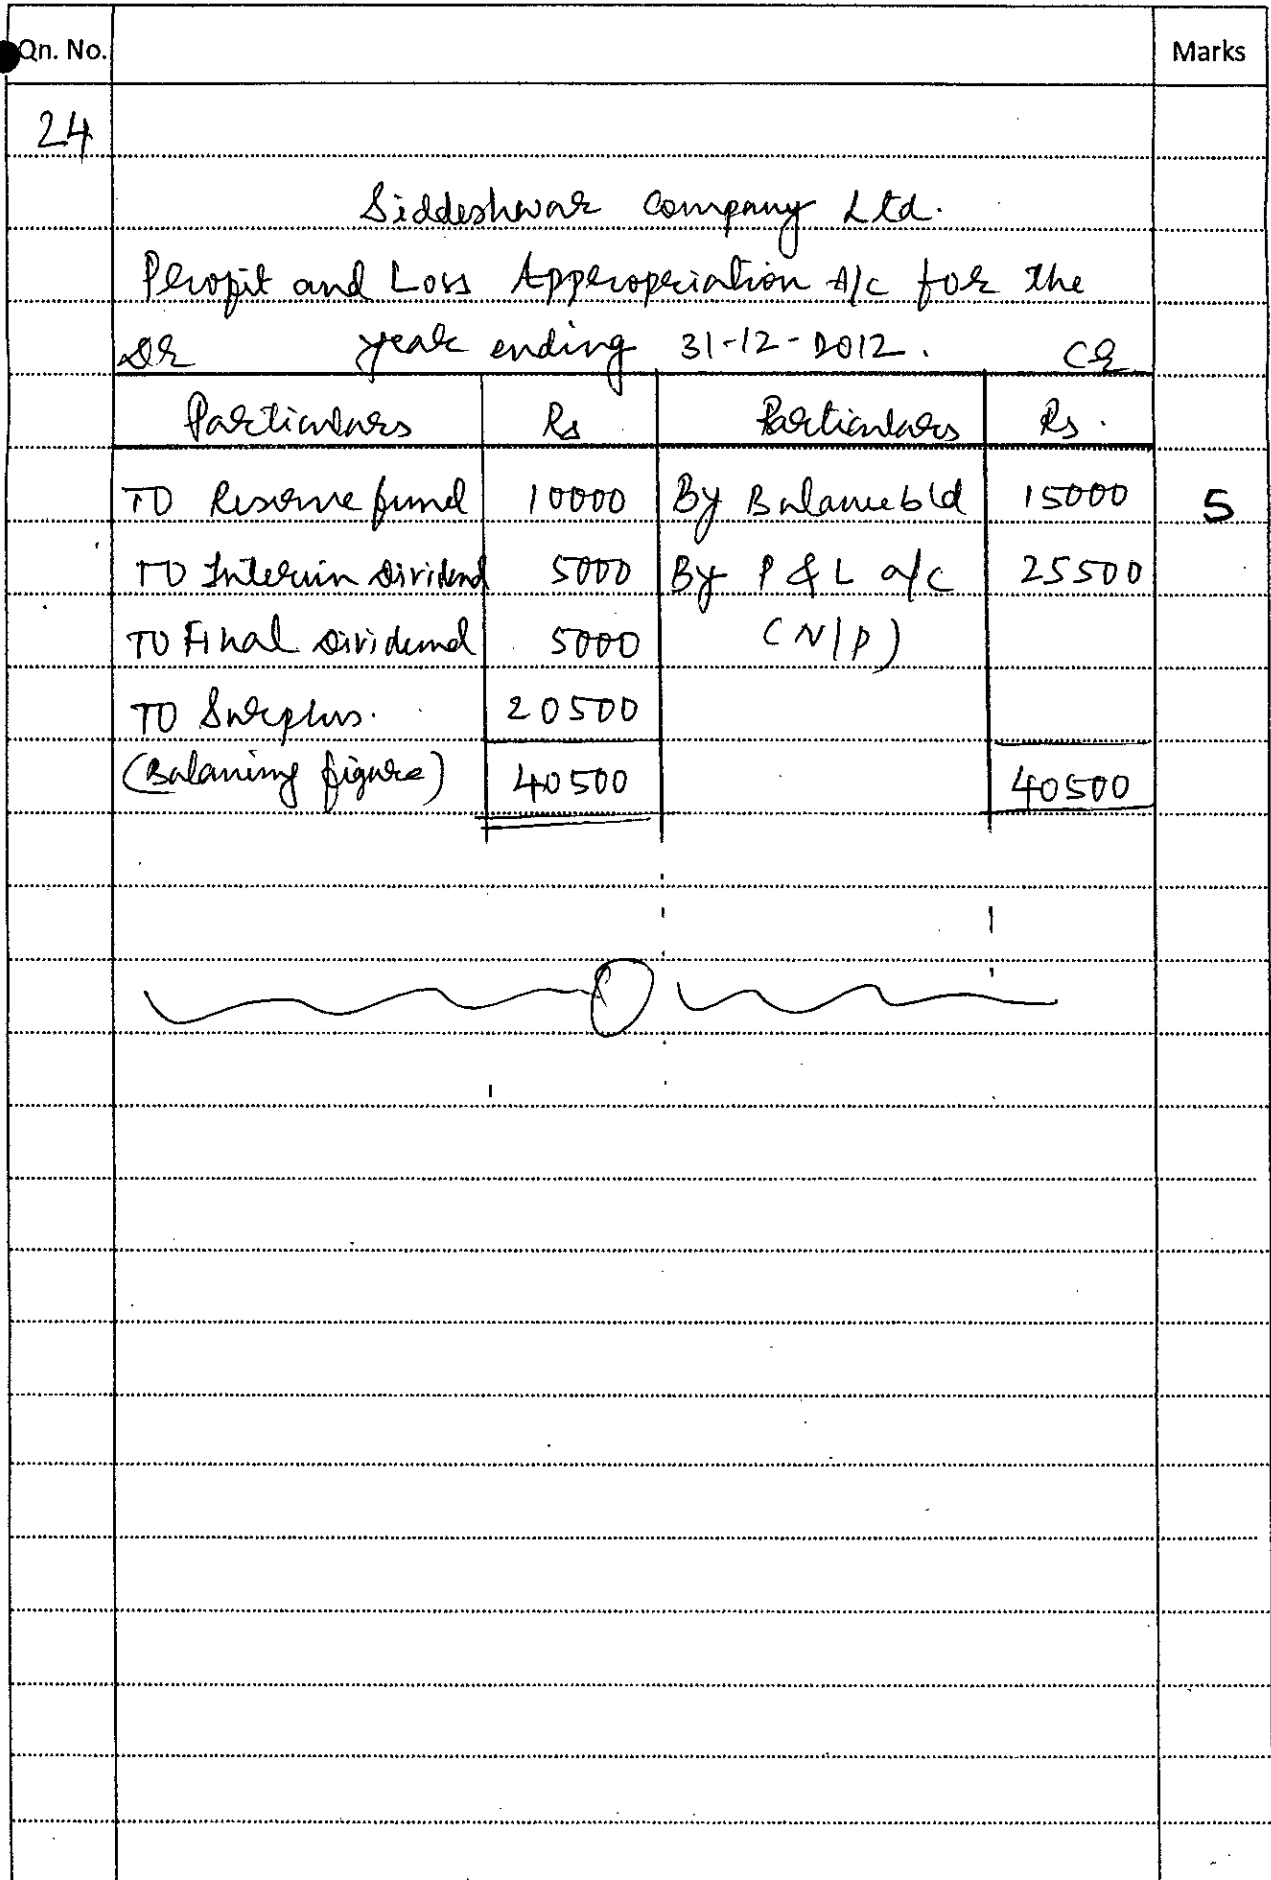 Qn. No. Marks
24
Siddeshwar Company Ltd.
Profit and Loss Appropriation A/c for the
Dr year ending 31-12-2012. Cr
Particulars Rs Particulars Rs.
TO Reserve fund 10000 By Balance b/d 15000 5
TO Interim Dividend 5000 By P & L a/c 25500
TO Final Dividend 5000 (N/P)
TO Surplus. 20500
(Balancing figure) 40500 40500